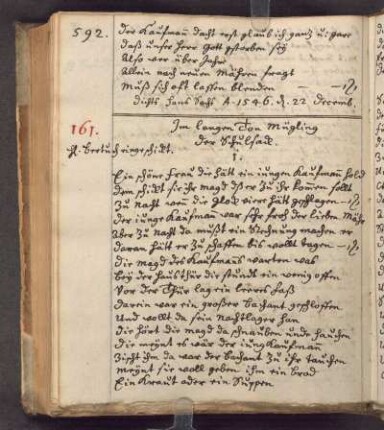 592.
der Kaufman dacht erst glaub ich ganz u: gar
daß unser herr Gott gestorben sey
Also wer über Jahr
Allein nach neuen Mähren fragt
Muß sich oft lassen blenden
dichts hans Sachs A. 1546. d. 22 Decemb.
161.
Im langen Ton Mügling
der Schulsack.
H. Bertuch eingeschikt.
1.
Ein schöne Frau die hätt ein iungen Kaufman hold
dem schikt sie ihr magd dß er Zu ihr komen sollt
Zu Nacht wen die Glok vier hätt geschlagen
der iunge Kaufman war sehr froh der lieben Mähr
Aber Zu Nacht da mußt ein Rechnung machen er
daran hätt er Zu schaffen bis wolt tagen
die magd des Kaufmans warten was
bey der hausthür die stund ein wenig offen
Vor der Thür lag ein leeres faß
darein war ein grosser Bachant geschloffen
Und wollt da sein Nachtlager han
die hört die magd da schnauben unde hauchen
die meynt es wär der iung Kaufman
Zischt ihm da war der Bachant Zu ihr tauchen
meynt sie woll geben ihm ein brod
Ein Kraut oder ein Suppen